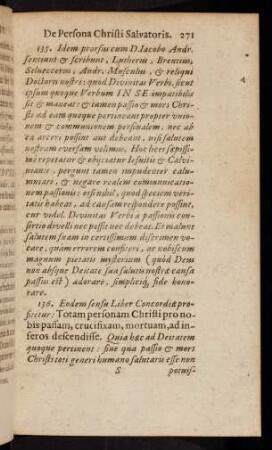 De Persona Christi Salvatoris. 271
135. Idem prorsus cum D. Iacobo Andr.
sentiunt & scribunt, Lutherus, Brentius,
Selneccerus, Andr. Musculus, & reliqui
Doctores nostri: quod Divinitas Verbi, sicut
ipsum quoque Verbum IN SE impatibilis
sit & maneat: & tamen passio & mors Chri-
sti ad eam quoque pertineant propter unio-
nem & communionem personalem: nec ab
ea arceri possint aut debeant, nisi salutem
nostram eversam velimus. Hoc licet sæpissi-
me repetatur & obijciatur Iesuitis & Calvi-
nianis, pergunt tamen impudenter calu-
mniari, & negare realem communicatio-
nem passionis: est nihil, quod speciem veri-
tatis habeat, ad causam respondere possint,
cur videl. Divinitas Verbi a passionis con-
sortio divelli nec possit nec debeat. Et malunt
salutem suam in certissimum discrimen vo-
care, quam errorem confiteri, ac nobiscum
magnum pietatis mysterium (quòd Deus
non absque Deitate sua salutis nostræ causa
passus est) adorare, simpliciq; fide hono-
rare.
136. Eodem sensu Liber Concordiæ pro-
fitetur: Totam personam Christi pro no-
bis passam, crucifixam, mortuam, ad in-
feros descendisse. Quia hæc ad Deitatem
quoque pertinent: sine qua passio & mors
Christi toti generi humano salutaris esse non
S potuis-